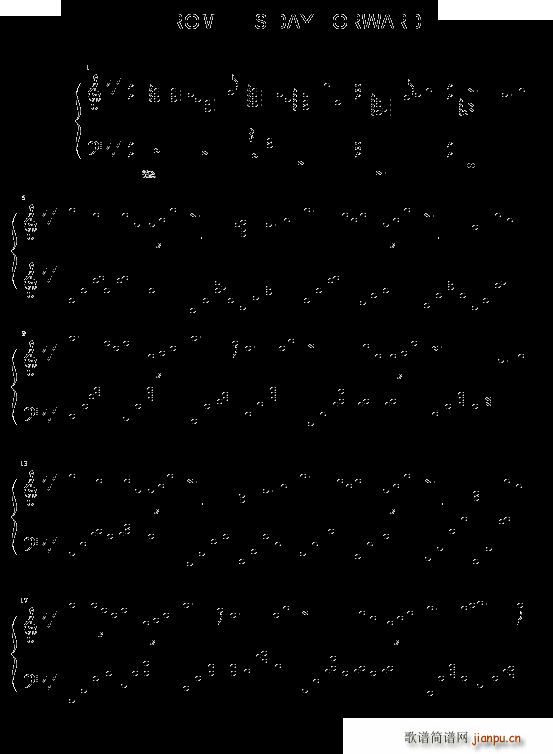 ROM   IS DAY FORWARD
1
5
9
13
17
歌谱简谱网
jianpu.cn